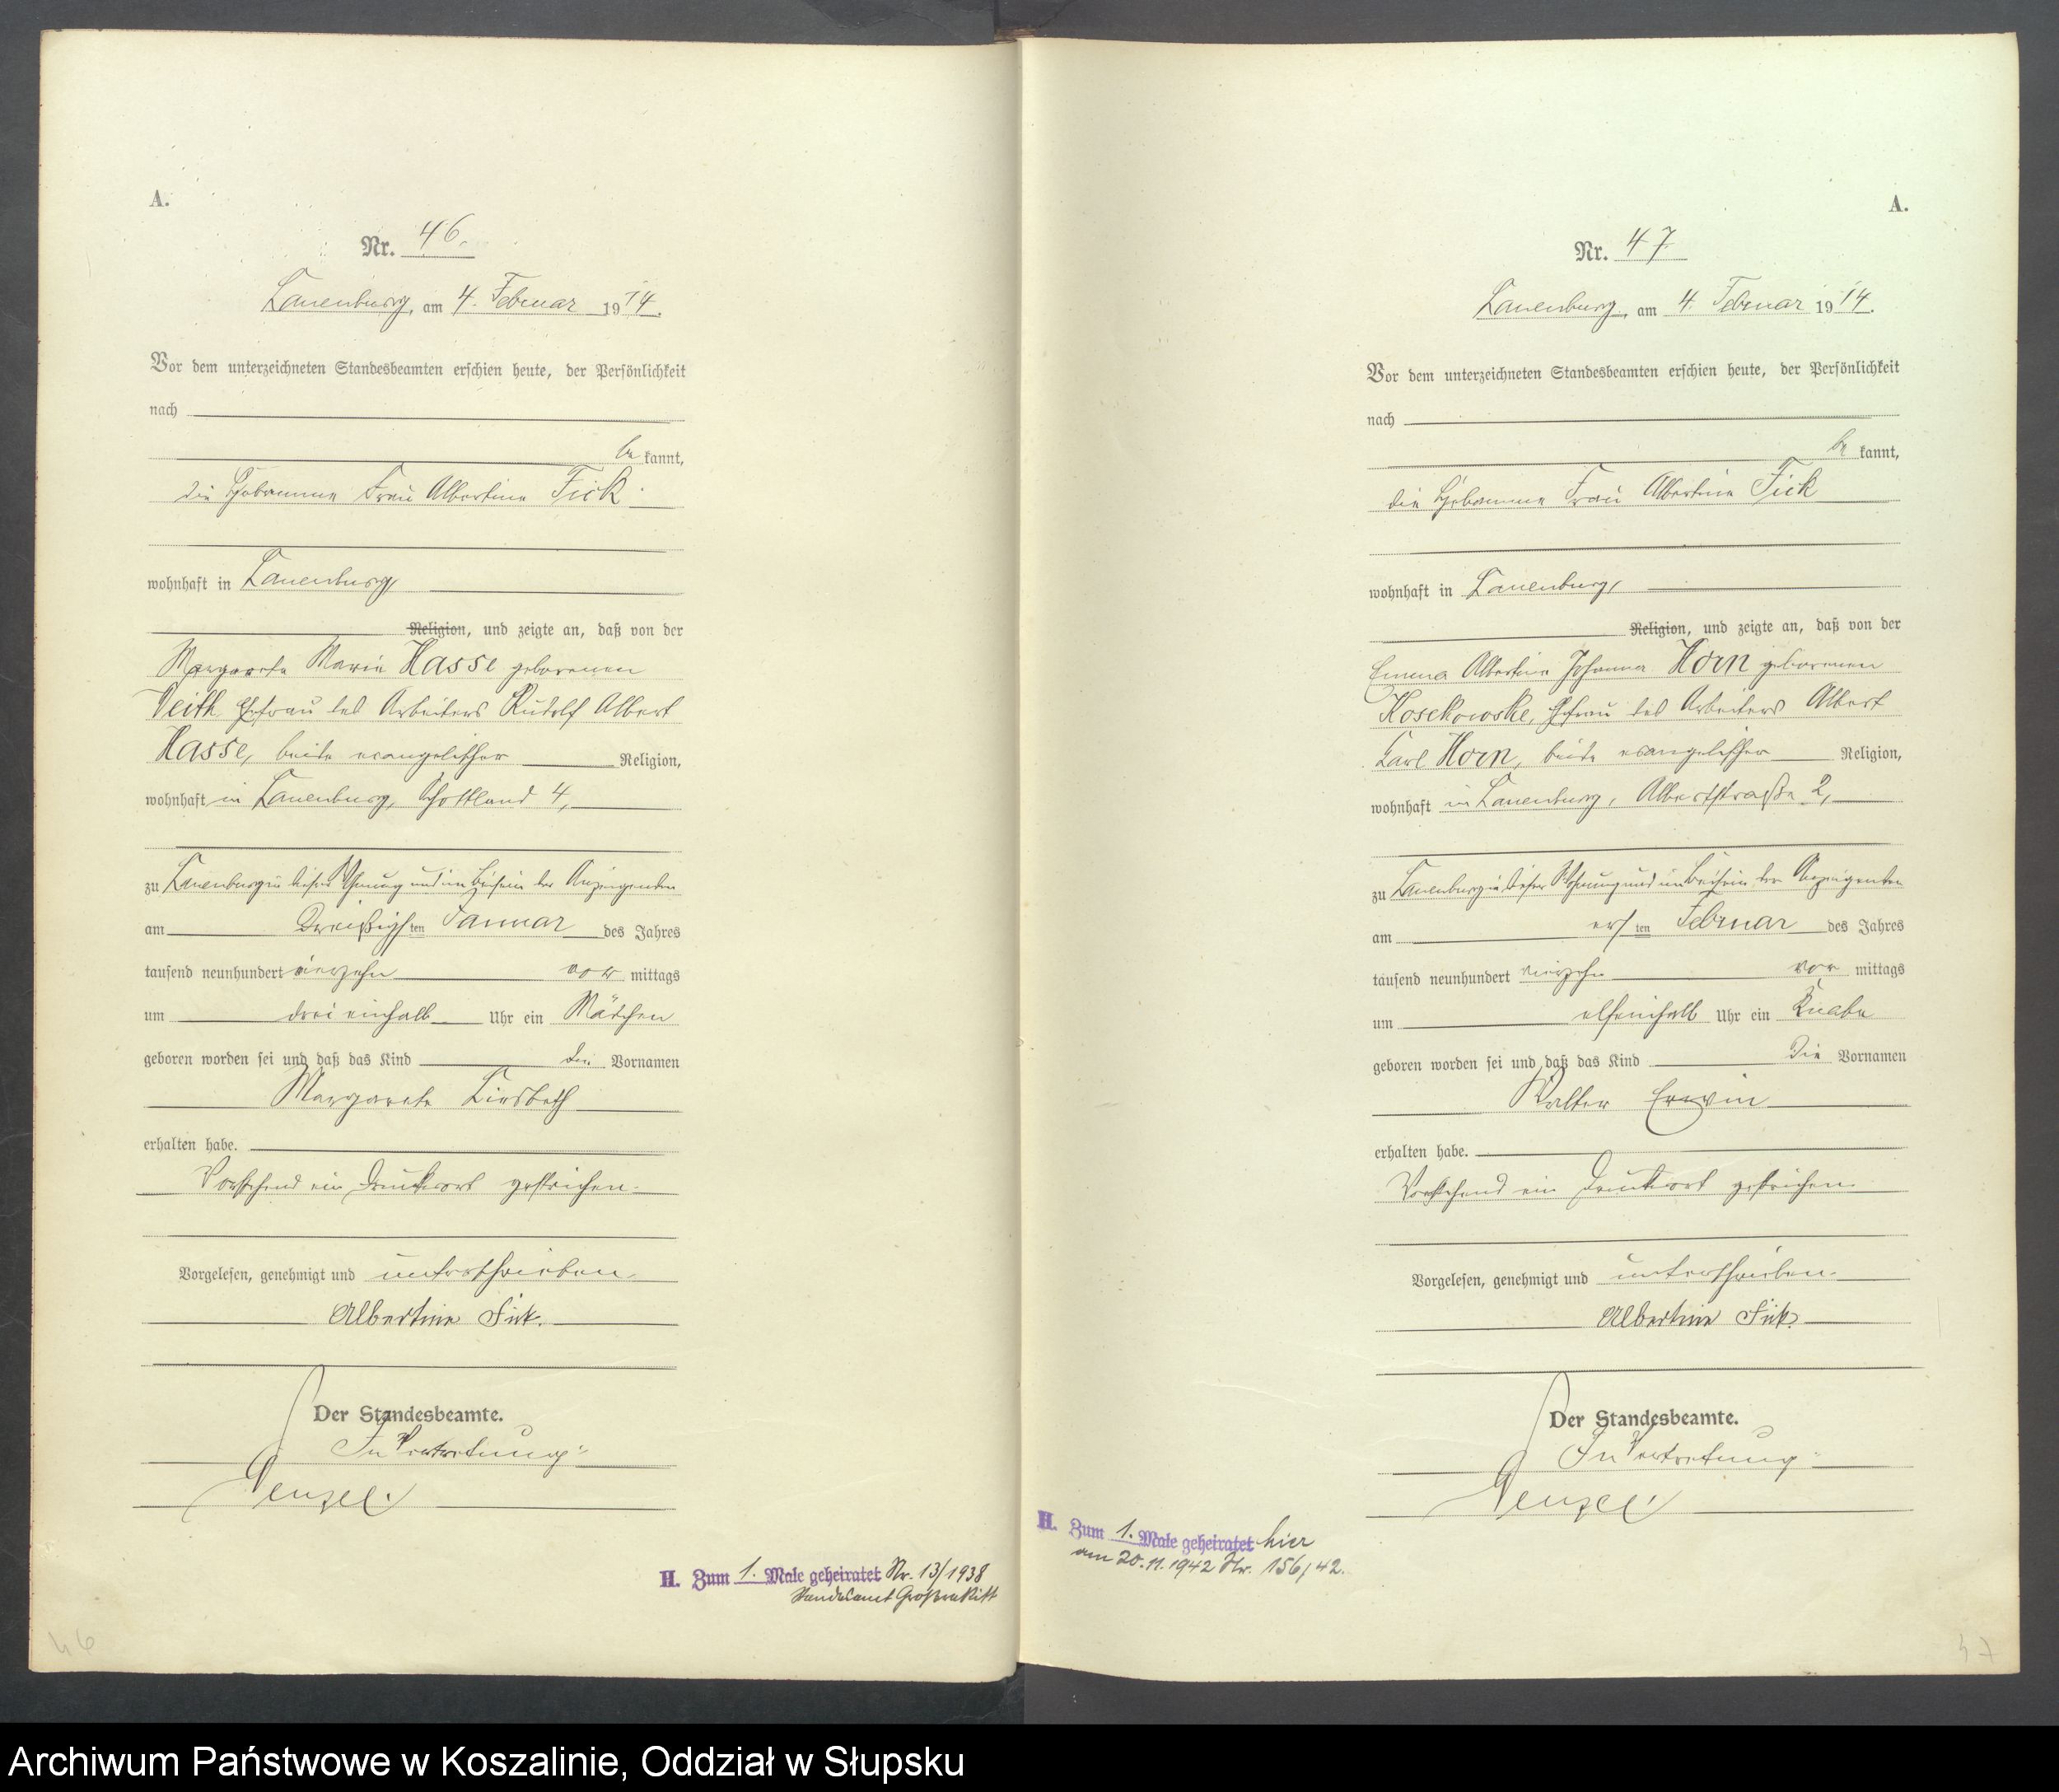 A.
Nr. 46.
Lauenburg, am 4. Februar 1914.
Vor dem unterzeichneten Standesbeamten erschien heute, der Persönlichkeit
nach
be kannt,
die Hebamme Frau Albertine Fick
wohnhaft in Lauenburg,
Religion, und zeigte an, daß von der
Margarete Marie Hasse geborenen
Veith, Ehefrau des Arbeiters Rudolf Albert
Hasse, beide evangelischer Religion,
wohnhaft in Lauenburg, Schottland 4,
zu Lauenburg in dieser Wohnung und im Beisein der Anzeigenden
am Dreißigsten Januar des Jahres
tausend neunhundert vierzehn vor mittags
um drei einhalb Uhr ein Mädchen
geboren worden sei und daß das Kind die Vornamen
Margarete Liesbeth
erhalten habe.
Vorstehend ein Druckwort gestrichen.
Vorgelesen, genehmigt und unterschrieben
Albertine Fick.
Der Standesbeamte.
In Vertretung:
H. Zum 1. Male geheiratet Nr. 13/1938
Standesamt
46
A.
Nr. 47
Lauenburg, am 4. Februar 1914.
Vor dem unterzeichneten Standesbeamten erschien heute, der Persönlichkeit
nach
be kannt,
die Hebamme Frau Albertine Fick
wohnhaft in Lauenburg,
Religion, und zeigte an, daß von der
Emma Albertine Johanna Horn geborenen
Kosekowske, Ehefrau des Arbeiters Albert
Karl Horn, beide evangelischer Religion,
wohnhaft in Lauenburg, Albertstraße 2,
zu Lauenburg in dieser Wohnung und im Beisein der Anzeigenden
am ersten Februar des Jahres
tausend neunhundert vierzehn vor mittags
um elfeinhalb Uhr ein Knabe
geboren worden sei und daß das Kind die Vornamen
Walter Erwin
erhalten habe.
Vorstehend ein Druckwort gestrichen.
Vorgelesen, genehmigt und unterschrieben.
Albertine Fick.
Der Standesbeamte.
In Vertretung:
H. Zum 1. Male geheiratet hier
am 20.11.1942 Nr. 156/42.
47
Archiwum Państwowe w Koszalinie, Oddział w Słupsku